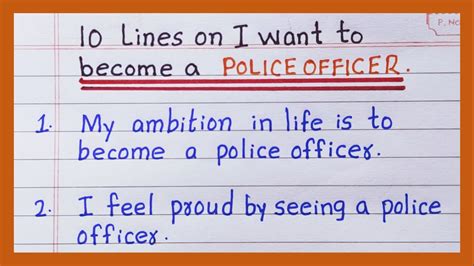 P. No
10 Lines on I want to
become a POLICE OFFICER.
1. My ambition in life is to
become a police officer.
2. I feel proud by seeing a police
officer.